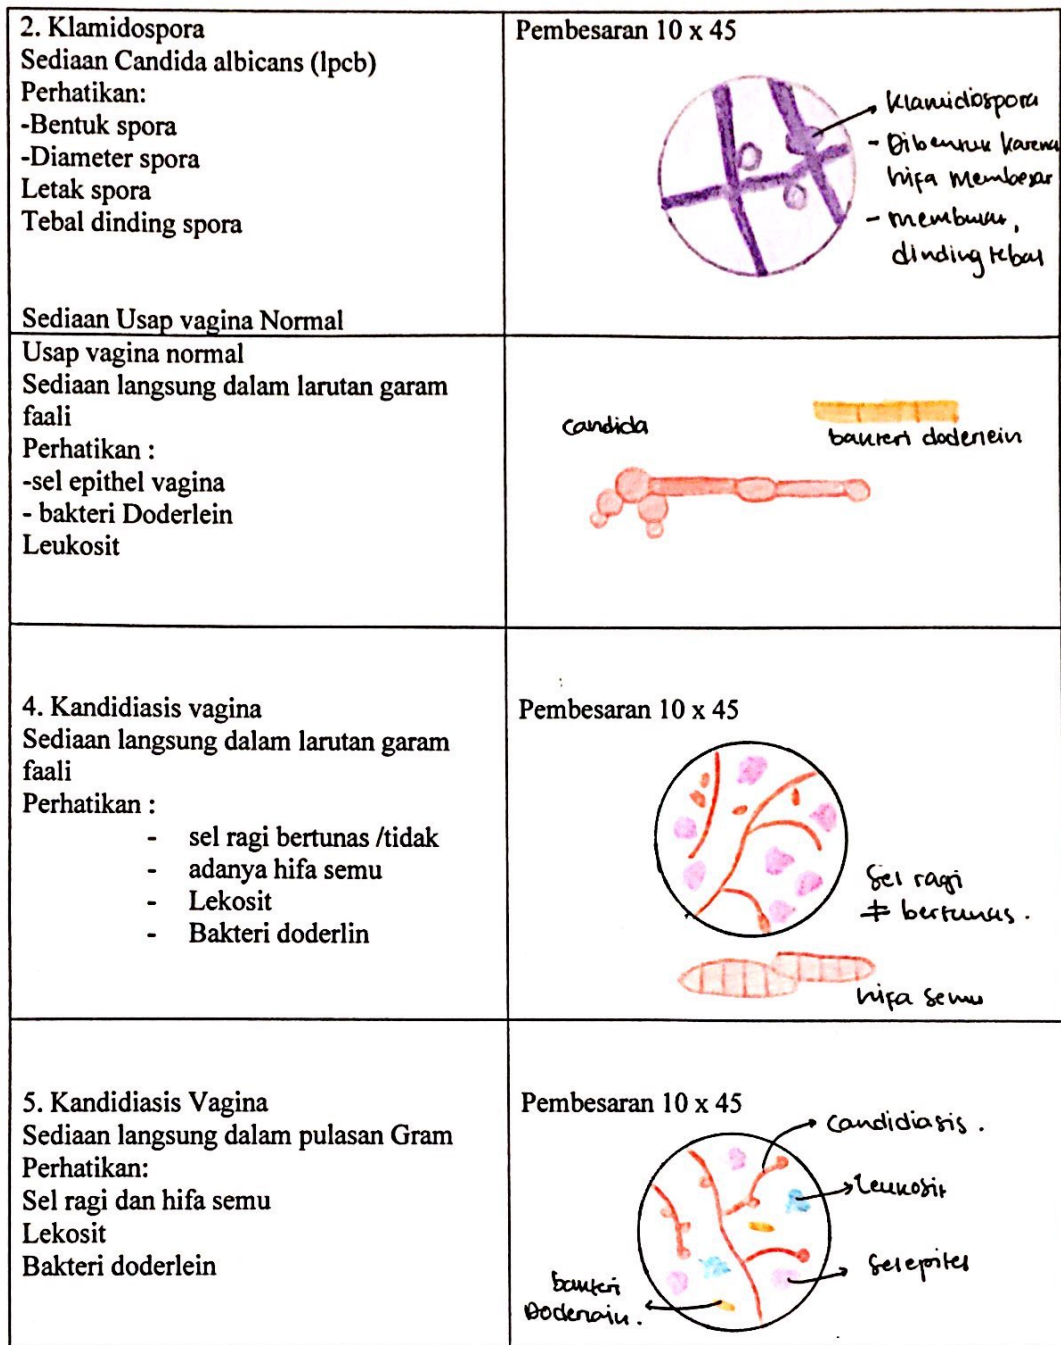 2. Klamidospora
Sediaan Candida albicans (lpcb)
Perhatikan:
-Bentuk spora
-Diameter spora
Letak spora
Tebal dinding spora
Sediaan Usap vagina Normal
Pembesaran 10 x 45
Klamidiospora
- Dibentuk karena
hifa membesar
- membulat,
dinding tebal
Usap vagina normal
Sediaan langsung dalam larutan garam
faali
Perhatikan :
-sel epithel vagina
- bakteri Doderlein
Leukosit
candida
bakteri doderlein
4. Kandidiasis vagina
Sediaan langsung dalam larutan garam
faali
Perhatikan :
- sel ragi bertunas /tidak
- adanya hifa semu
- Lekosit
- Bakteri doderlin
Pembesaran 10 x 45
Sel ragi
≠ bertunas.
hifa semu
5. Kandidiasis Vagina
Sediaan langsung dalam pulasan Gram
Perhatikan:
Sel ragi dan hifa semu
Lekosit
Bakteri doderlein
Pembesaran 10 x 45
candidiasis.
Leukosit
Sel epitel
bakteri